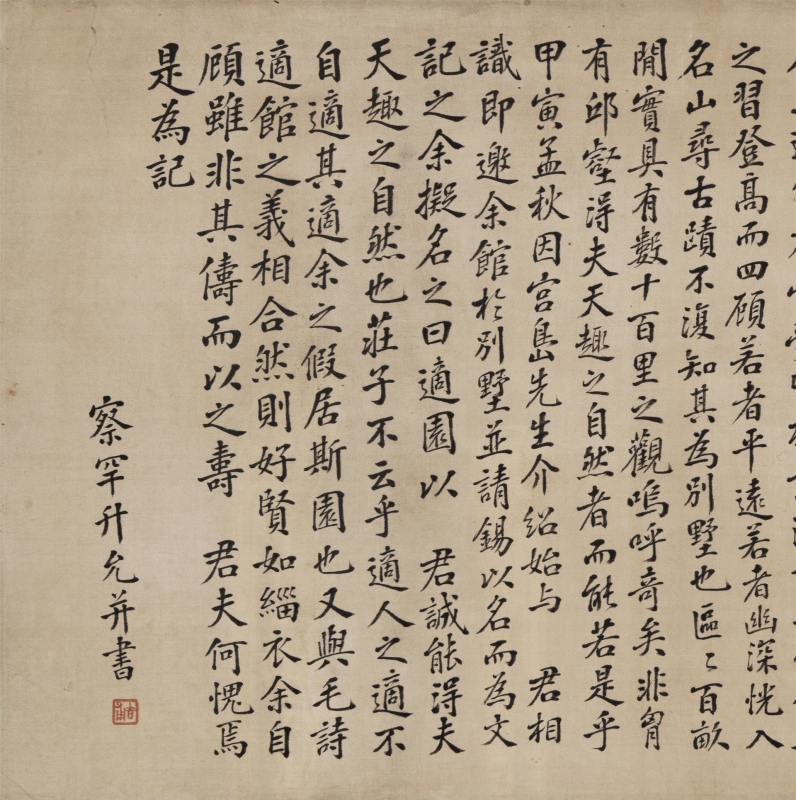 之習登高而四顧若者平遠若者幽深恍入
名山尋古蹟不復知其為別墅也區〻百畝
閒實具有數十百里之觀嗚呼奇矣非胷
有邱壑得夫天趣之自然者而能若是乎
甲寅孟秋因宮島先生介紹始与 君相
識即邀余館於別墅並請錫以名而為文
記之余擬名之曰適園以 君誠能得夫
天趣之自然也莊子不云乎適人之適不
自適其適余之假居斯園也又與毛詩
適館之義相合然則好賢如緇衣余自
顧雖非其儔而以之壽 君夫何愧焉
是為記
察罕升允并書